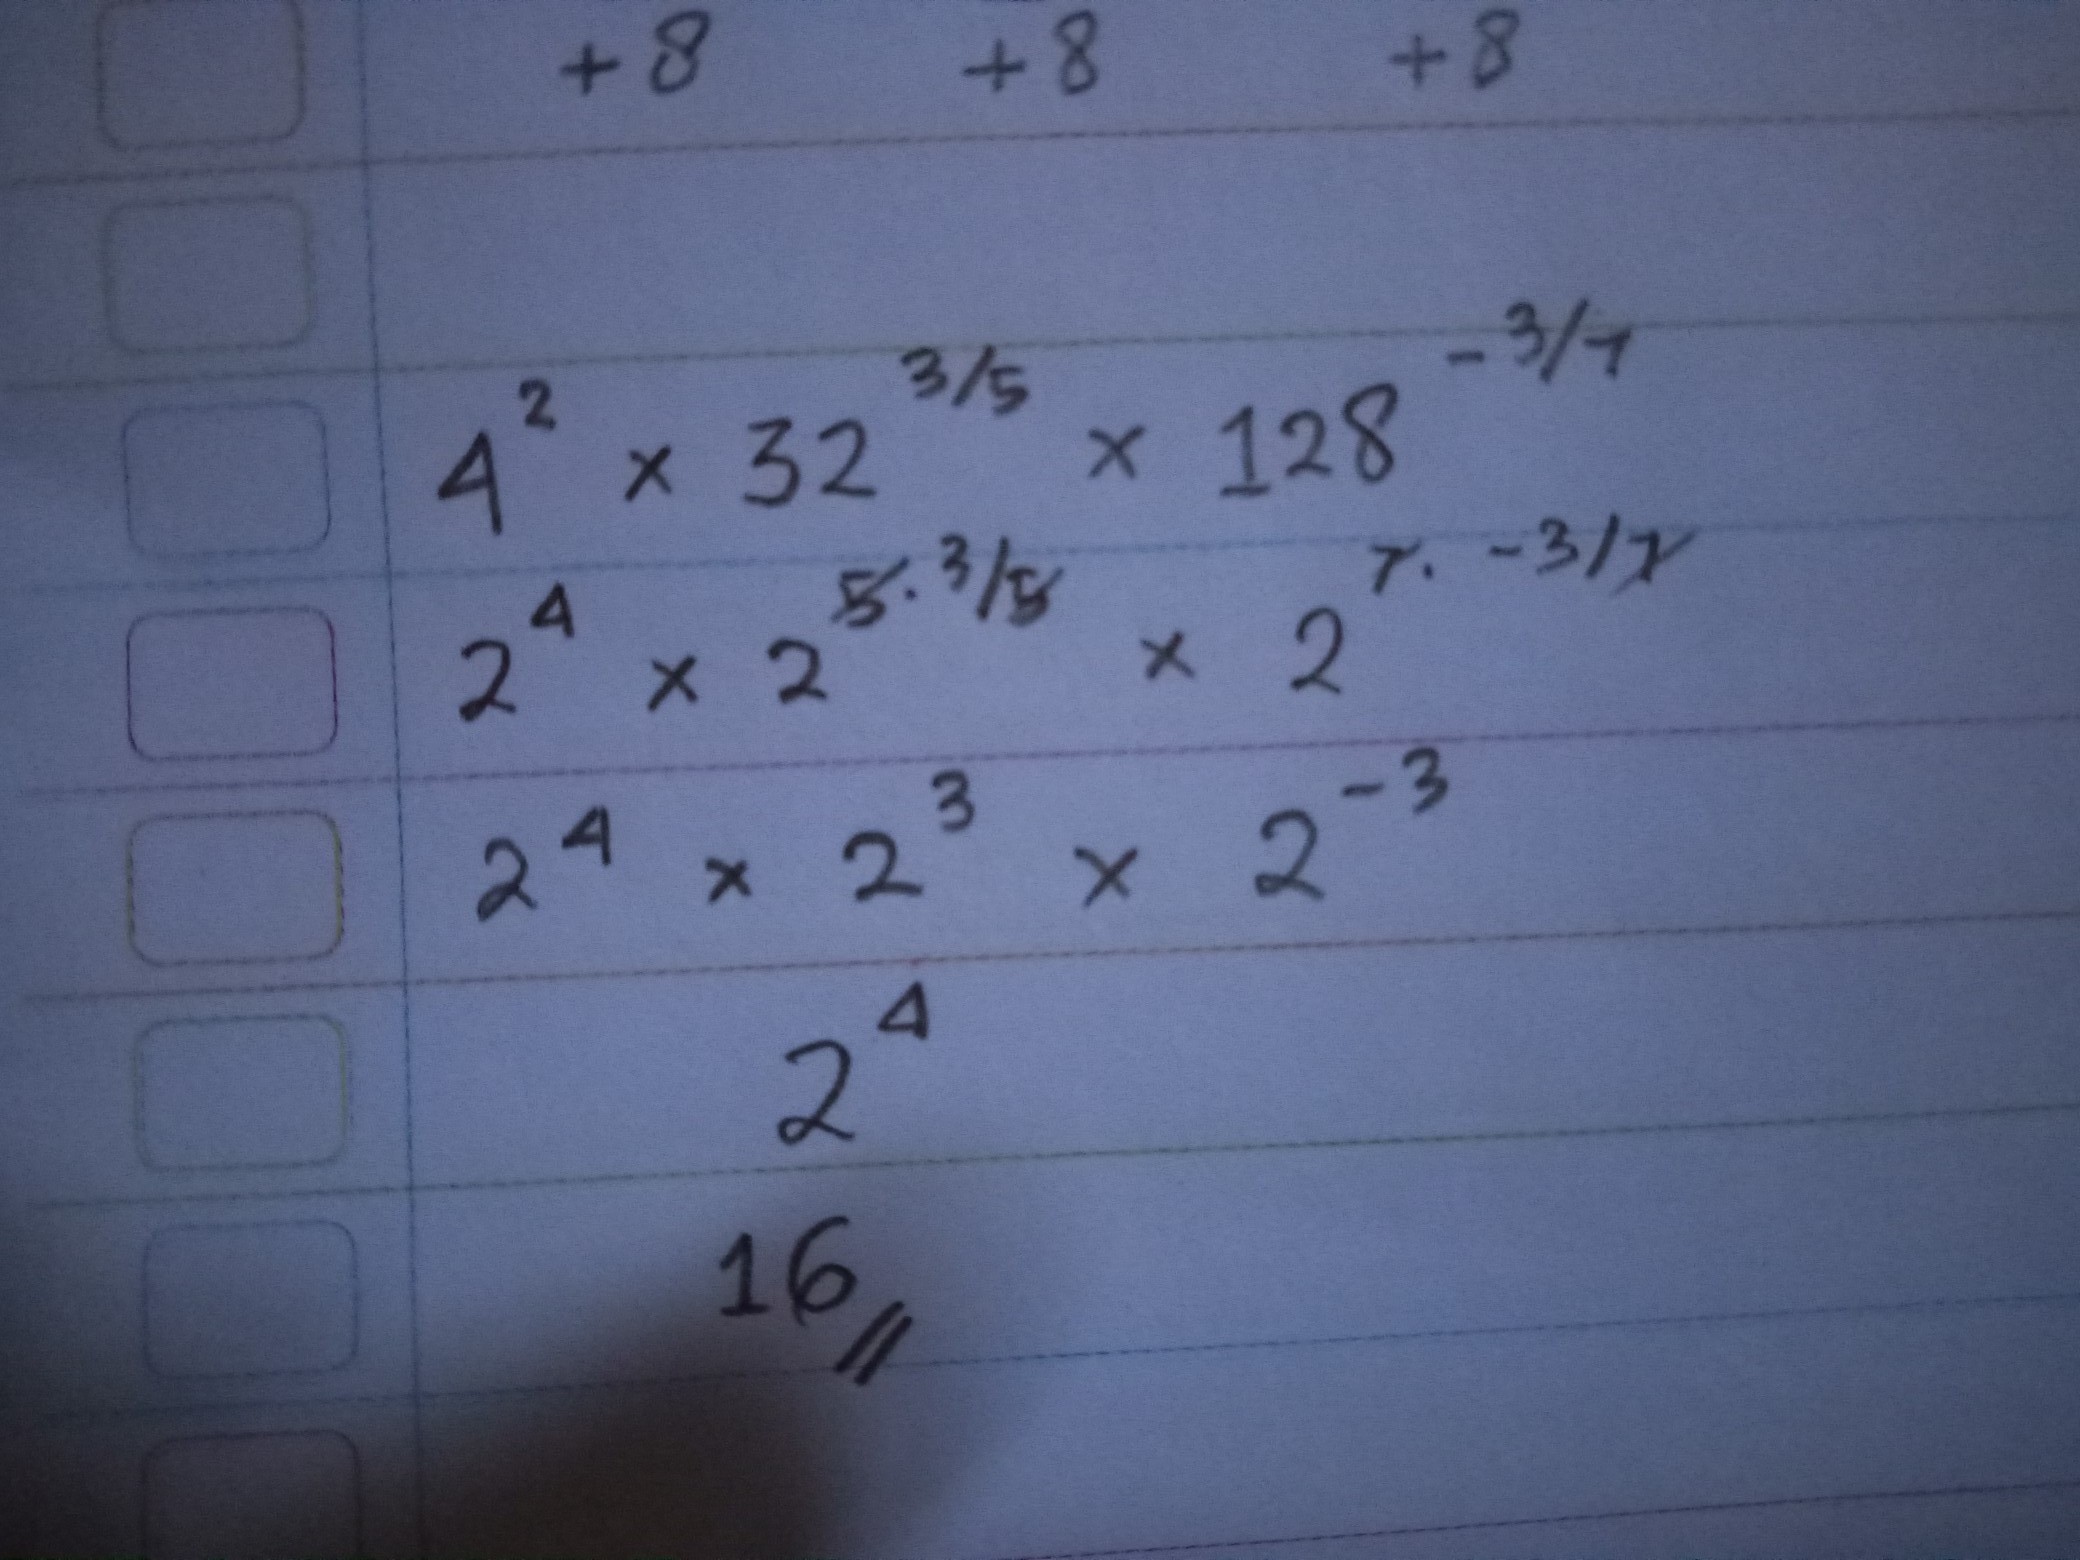 +8 +8 +8
4² × 32^3/5 × 128^-3/7
2⁴ × 2^5·3/5 × 2^7·-3/7
2⁴ × 2³ × 2^-3
2⁴
16//